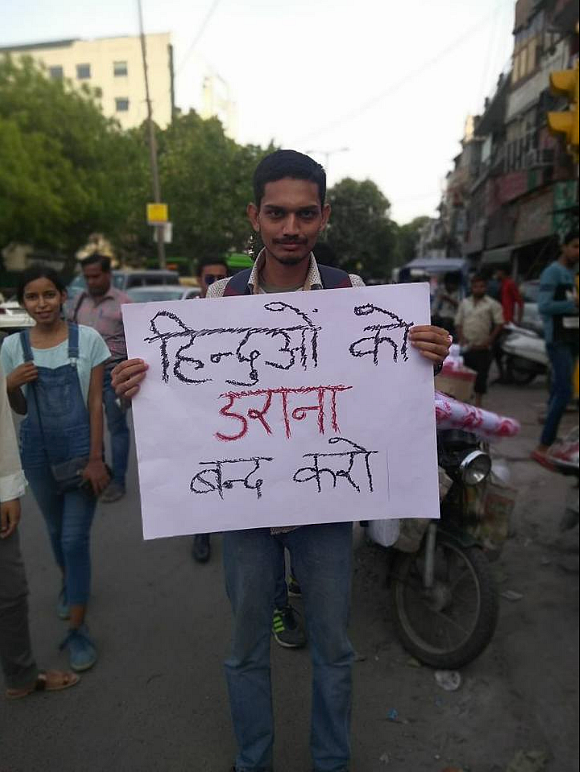 हिन्दुओं को
डराना
बन्द करो